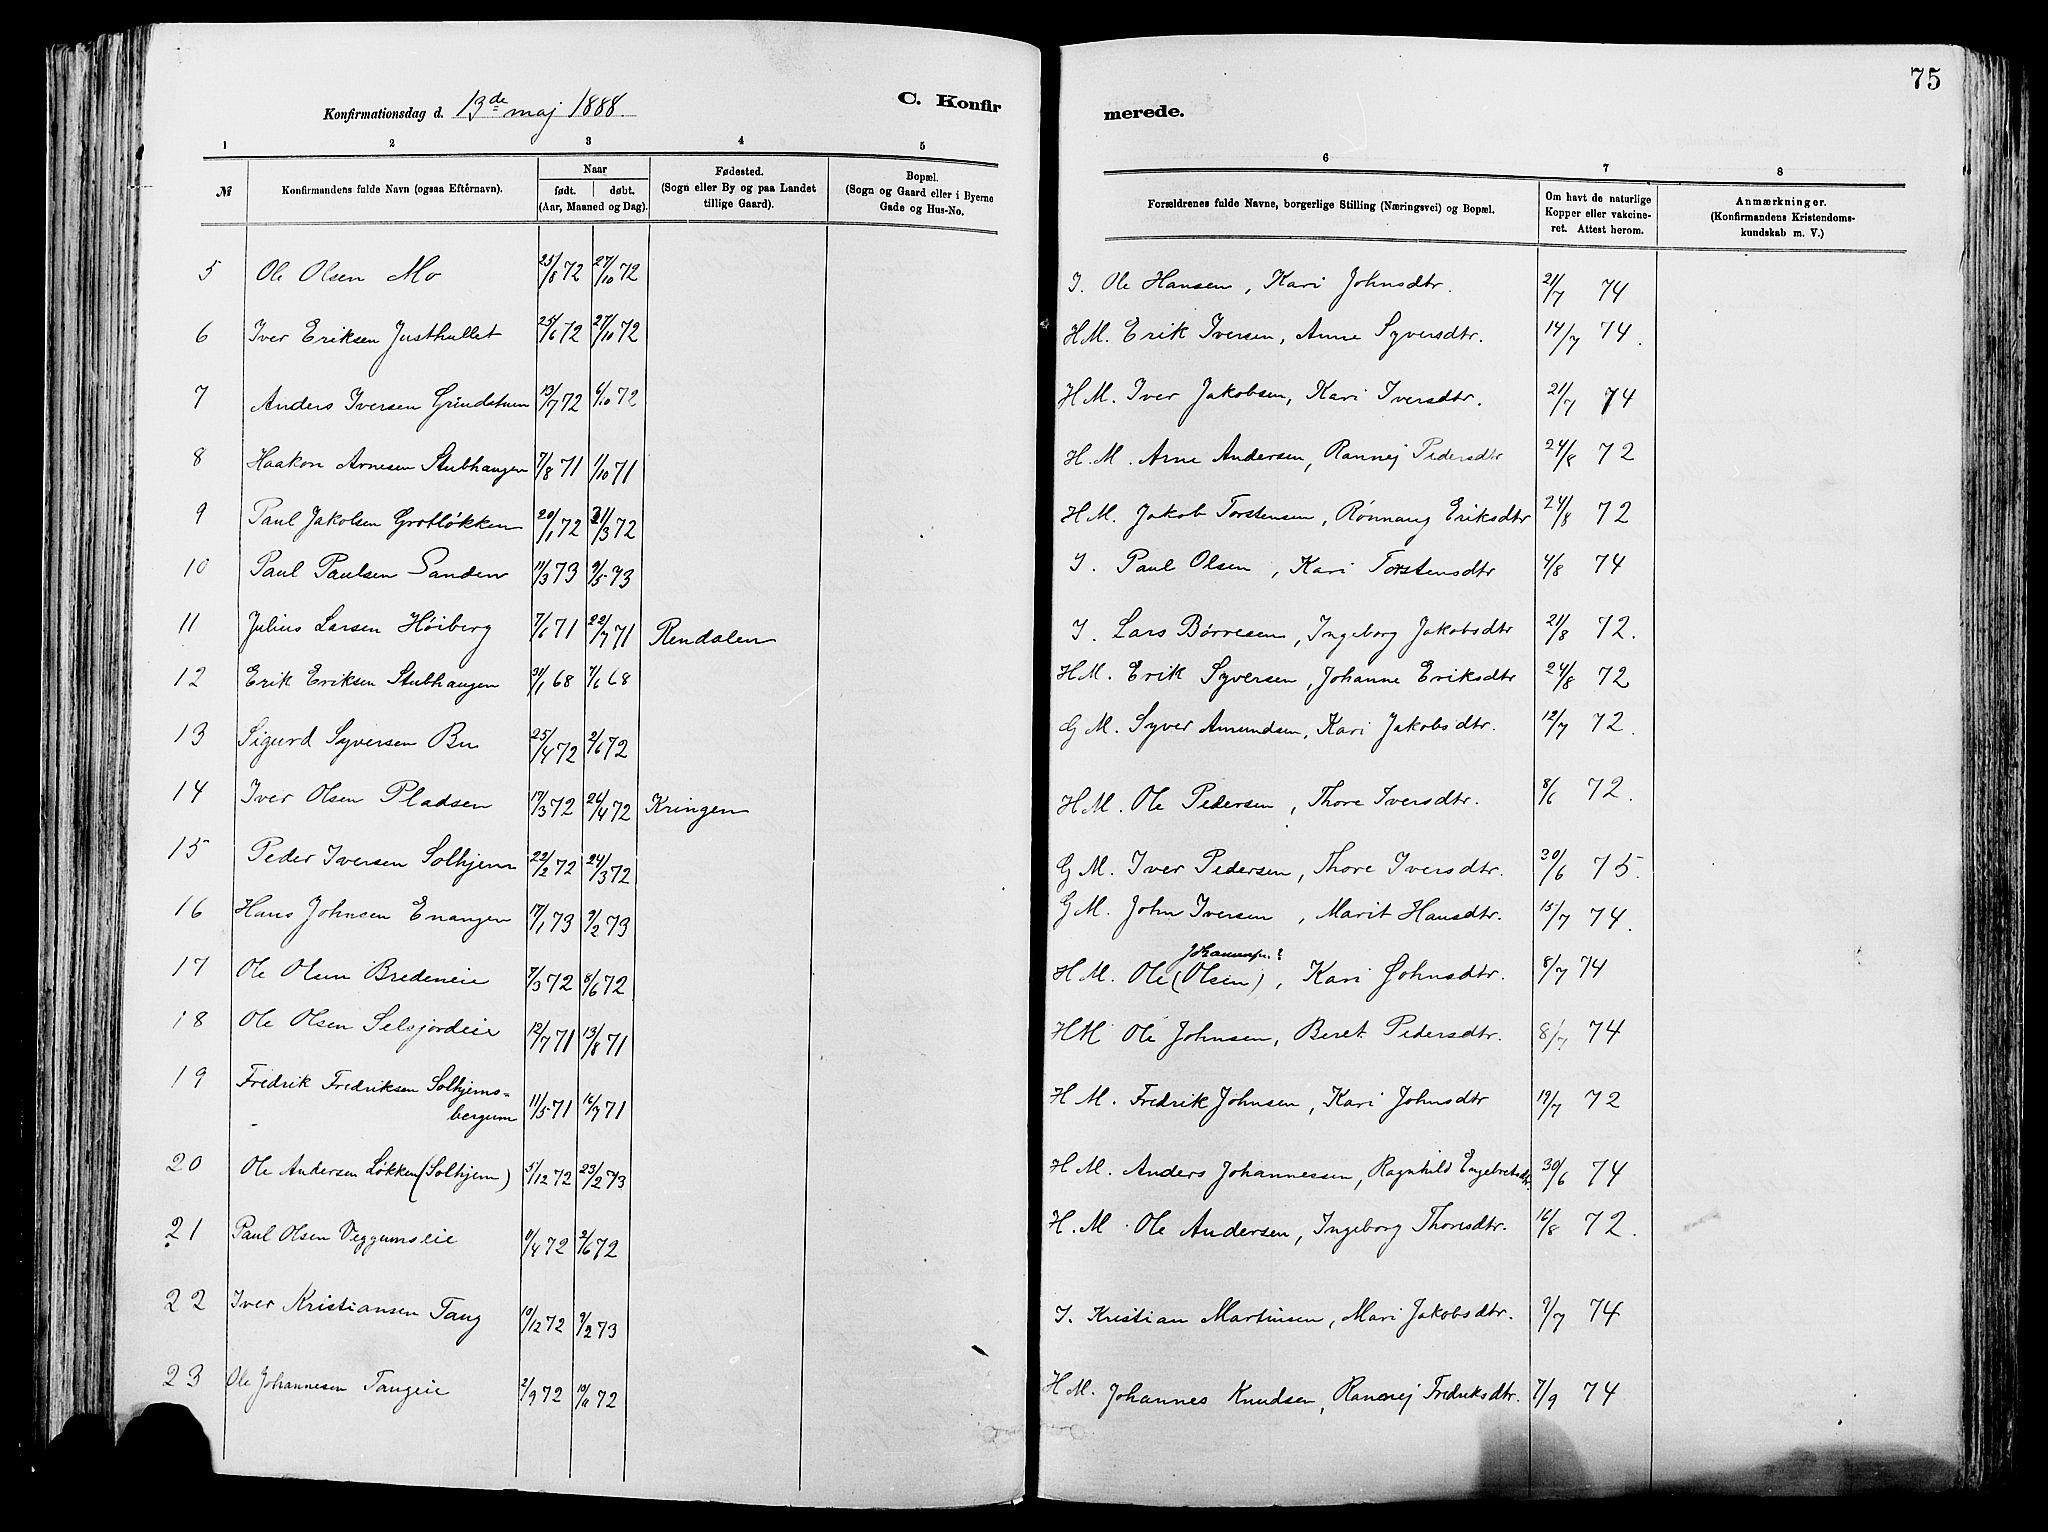 75
Konfirmationsdag d. 13de maj 1888. C. Konfirmerede.
1 2 3 4 5 6 7 8
№ Konfirmandens fulde Navn (ogsaa Efternavn). Naar født. døbt. (Aar, Maaned og Dag). Fødested. (Sogn eller By og paa Landet tillige Gaard). Bopæl. (Sogn og Gaard eller i Byerne Gade og Hus-No. Forældrenes fulde Navne, borgerlige Stilling (Næringsvei) og Bopæl. Om havt de naturlige Kopper eller vakcineret. Attest herom. Anmærkninger. (Konfirmandens Kristendomskundskab m. V.)
5 Ole Olsen Mo 23/8 72 27/10 72 I. Ole Hansen, Kari Johnsdtr. 21/7 74
6 Iver Eriksen Justhullet 25/6 72 27/10 72 H M. Erik Iversen, Anne Syversdtr. 14/7 74.
7 Anders Iversen Grindstuen 13/7 72 6/10 72 H M. Iver Jakobsen, Kari Iversdtr. 21/7 74
8 Haakon Arnesen Stubhaugen 7/8 71 1/10 71 H. M. Arne Andersen, Rannej Pedersdtr 24/8 72
9 Paul Jakobsen Grotløkken 20/1 72 31/3 72 H M. Jakob Torstensen, Rønnaug Eriksdtr 24/8 72
10 Paul Paulsen Sanden 11/3 73 9/5 73 I. Paul Olsen, Kari Torstensdtr 4/8 74
11 Julius Larsen Høiberg 7/6 71 22/7 71 Rendalen I. Lars Børresen, Ingeborg Jakobsdtr 21/8 72.
12 Erik Eriksen Stubhaugen 31/1 68 7/6 68 H M. Erik Syversen, Johanne Eriksdtr 24/8 72
13 Sigurd Syversen Bu 25/4 72 2/6 72 G M. Syver Amundsen, Kari Jakobsdtr. 12/7 72.
14 Iver Olsen Pladsen 17/3 72 26/4 72 Kringen H M. Ole Pedersen, Thore Iversdtr. 8/6 72.
15 Peder Iversen Solhjem 22/2 72 24/3 72 G M. Iver Pedersen, Thore Iversdtr. 30/6 75.
16 Hans Johnsen Enangen 17/1 73 9/2 73 G M. John Iversen, Marit Hansdtr. 15/7 74.
17 Ole Olsen Bredeneie 9/3 72 8/6 72 H M. Ole (Olsen) Johannesen?, Kari Johnsdtr. 8/7 74
18 Ole Olsen Selsjordeie 12/7 71 13/8 71 H M Ole Johnsen, Beret Pedersdtr. 8/7 74
19 Fredrik Fredriksen Solhjems-
bergum 11/5 71 16/7 71 H M. Fredrik Johnsen, Kari Johnsdtr 19/7 72
20 Ole Andersen Løkken (Solhjem) 5/12 72 23/2 73 H M. Anders Johannessen, Ragnhild Engebretsdtr. 30/6 74
21 Paul Olsen Veggumseie 11/4 72 2/6 72 H. M. Ole Andersen, Ingeborg Thoresdtr. 16/8 72.
22 Iver Kristiansen Tang 19/12 72 9/2 73 I. Kristian Martinsen, Mari Jakobsdtr. 9/7 74
23 Ole Johannesen Tangeie 2/9 72 10/11 72 H M. Johannes Knudsen, Rannej Fredriksdtr. 7/9 74